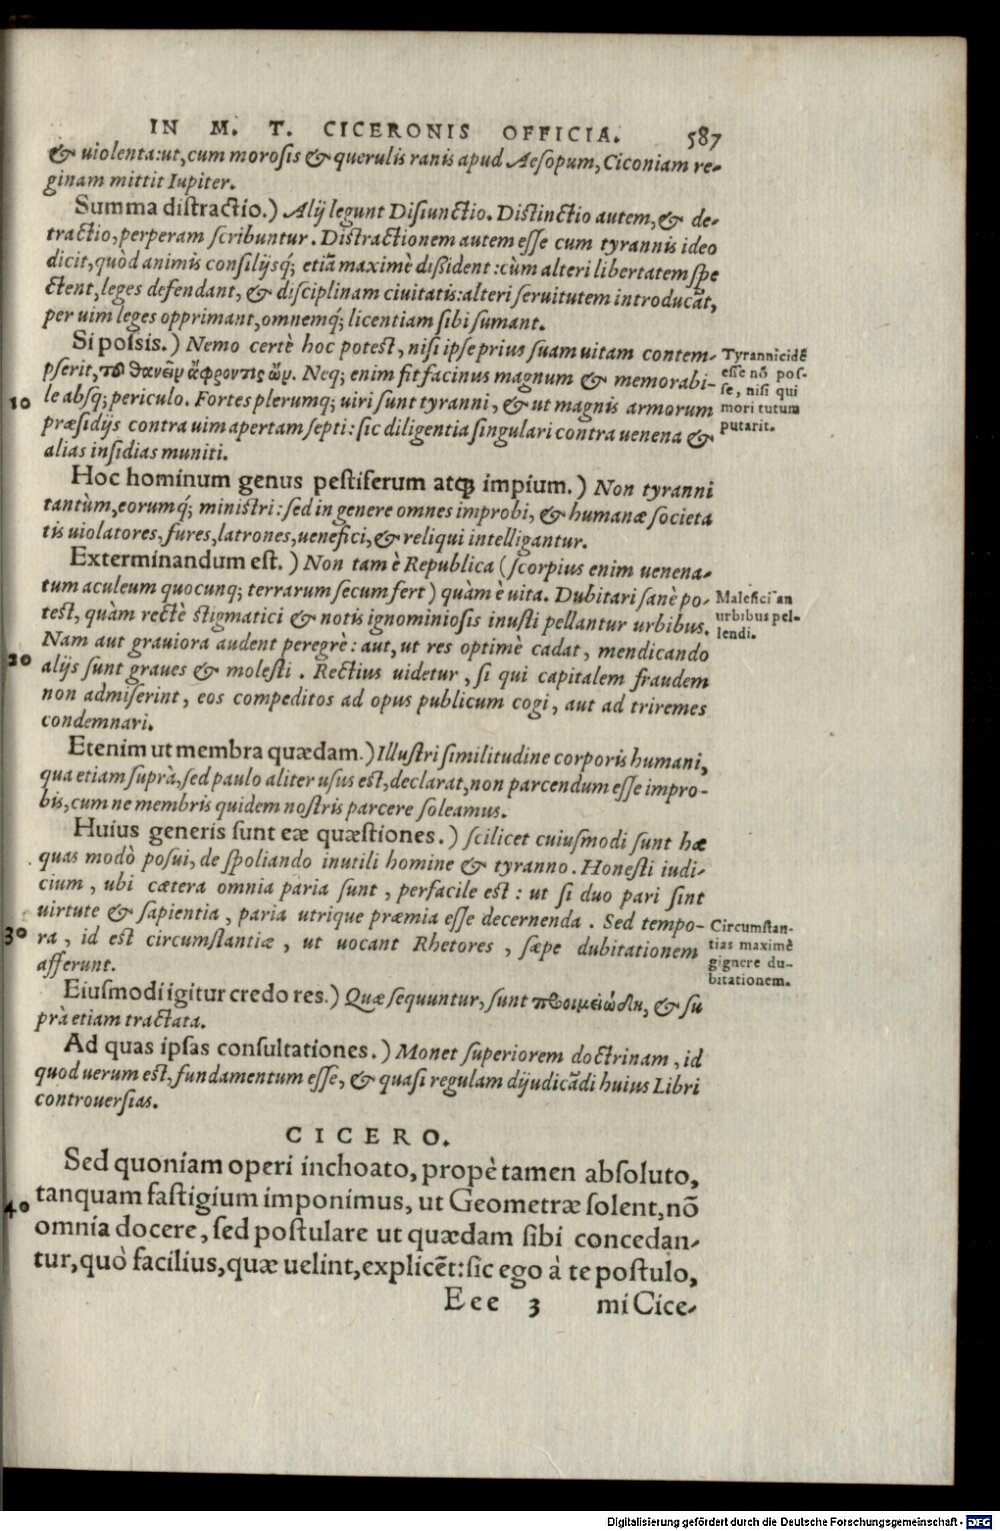 IN M. T. CICERONIS OFFICIA. 587
& uiolenta: ut, cum morosis & querulis ranis apud Aesopum, Ciconiam re-
ginam mittit Iupiter.
Summa distractio.) Alij legunt Disiunctio. Distinctio autem, & de-
tractio, perperam scribuntur. Distractionem autem esse cum tyrannis ideo
dicit, quòd animis consilijsq́; etiã maximè dißident: cùm alteri libertatem spe
ctent, leges defendant, & disciplinam ciuitatis: alteri seruitutem introducãt,
per uim leges opprimant, omnemq́; licentiam sibi sumant.
Si possis.) Nemo certè hoc potest, nisi ipse prius suam uitam contem-
pserit, τοῦ θανεῖν ἄφροντις ὤν. Neq; enim fit facinus magnum & memorabi-
10 le absq; periculo. Fortes plerumq; uiri sunt tyranni, & ut magnis armorum
præsidijs contra uim apertam septi: sic diligentia singulari contra uenena &
alias insidias muniti.
Tyrannicidã
esse nõ pos-
se, nisi qui
mori tutum
putarit.
Hoc hominum genus pestiferum atq; impium.) Non tyranni
tantùm, eorumq́; ministri: sed in genere omnes improbi, & humanæ societa
tis uiolatores, fures, latrones, uenefici, & reliqui intelligantur.
Exterminandum est.) Non tam è Republica (scorpius enim uenena-
tum aculeum quocunq; terrarum secum fert) quàm è uita. Dubitari sanè po-
test, quàm rectè stigmatici & notis ignominiosis inusti pellantur urbibus.
Nam aut grauiora audent peregrè: aut, ut res optimè cadat, mendicando
20 alijs sunt graues & molesti. Rectius uidetur, si qui capitalem fraudem
non admiserint, eos compeditos ad opus publicum cogi, aut ad triremes
condemnari.
Malefici an
urbibus pel-
lendi.
Etenim ut membra quædam.) Illustri similitudine corporis humani,
qua etiam suprà, sed paulo aliter usus est, declarat, non parcendum esse impro-
bis, cum ne membris quidem nostris parcere soleamus.
Huius generis sunt eæ quæstiones.) scilicet cuiusmodi sunt hæ
quas modò posui, de spoliando inutili homine & tyranno. Honesti iudi-
cium, ubi cætera omnia paria sunt, perfacile est: ut si duo pari sint
uirtute & sapientia, paria utrique præmia esse decernenda. Sed tempo-
30 ra, id est circumstantiæ, ut uocant Rhetores, sæpe dubitationem
afferunt.
Circumstan-
tias maximè
gignere du-
bitationem.
Eiusmodi igitur credo res.) Quæ sequuntur, sunt προοιμιώδη, & su
prà etiam tractata.
Ad quas ipsas consultationes.) Monet superiorem doctrinam, id
quod uerum est, fundamentum esse, & quasi regulam dijudicãdi huius Libri
controuersias.
CICERO.
Sed quoniam operi inchoato, propè tamen absoluto,
40 tanquam fastigium imponimus, ut Geometræ solent, nõ
omnia docere, sed postulare ut quædam sibi concedan-
tur, quò facilius, quæ uelint, explicẽt: sic ego à te postulo,
Eee 3 mi Cice-
Digitalisierung gefördert durch die Deutsche Forschungsgemeinschaft - DFG